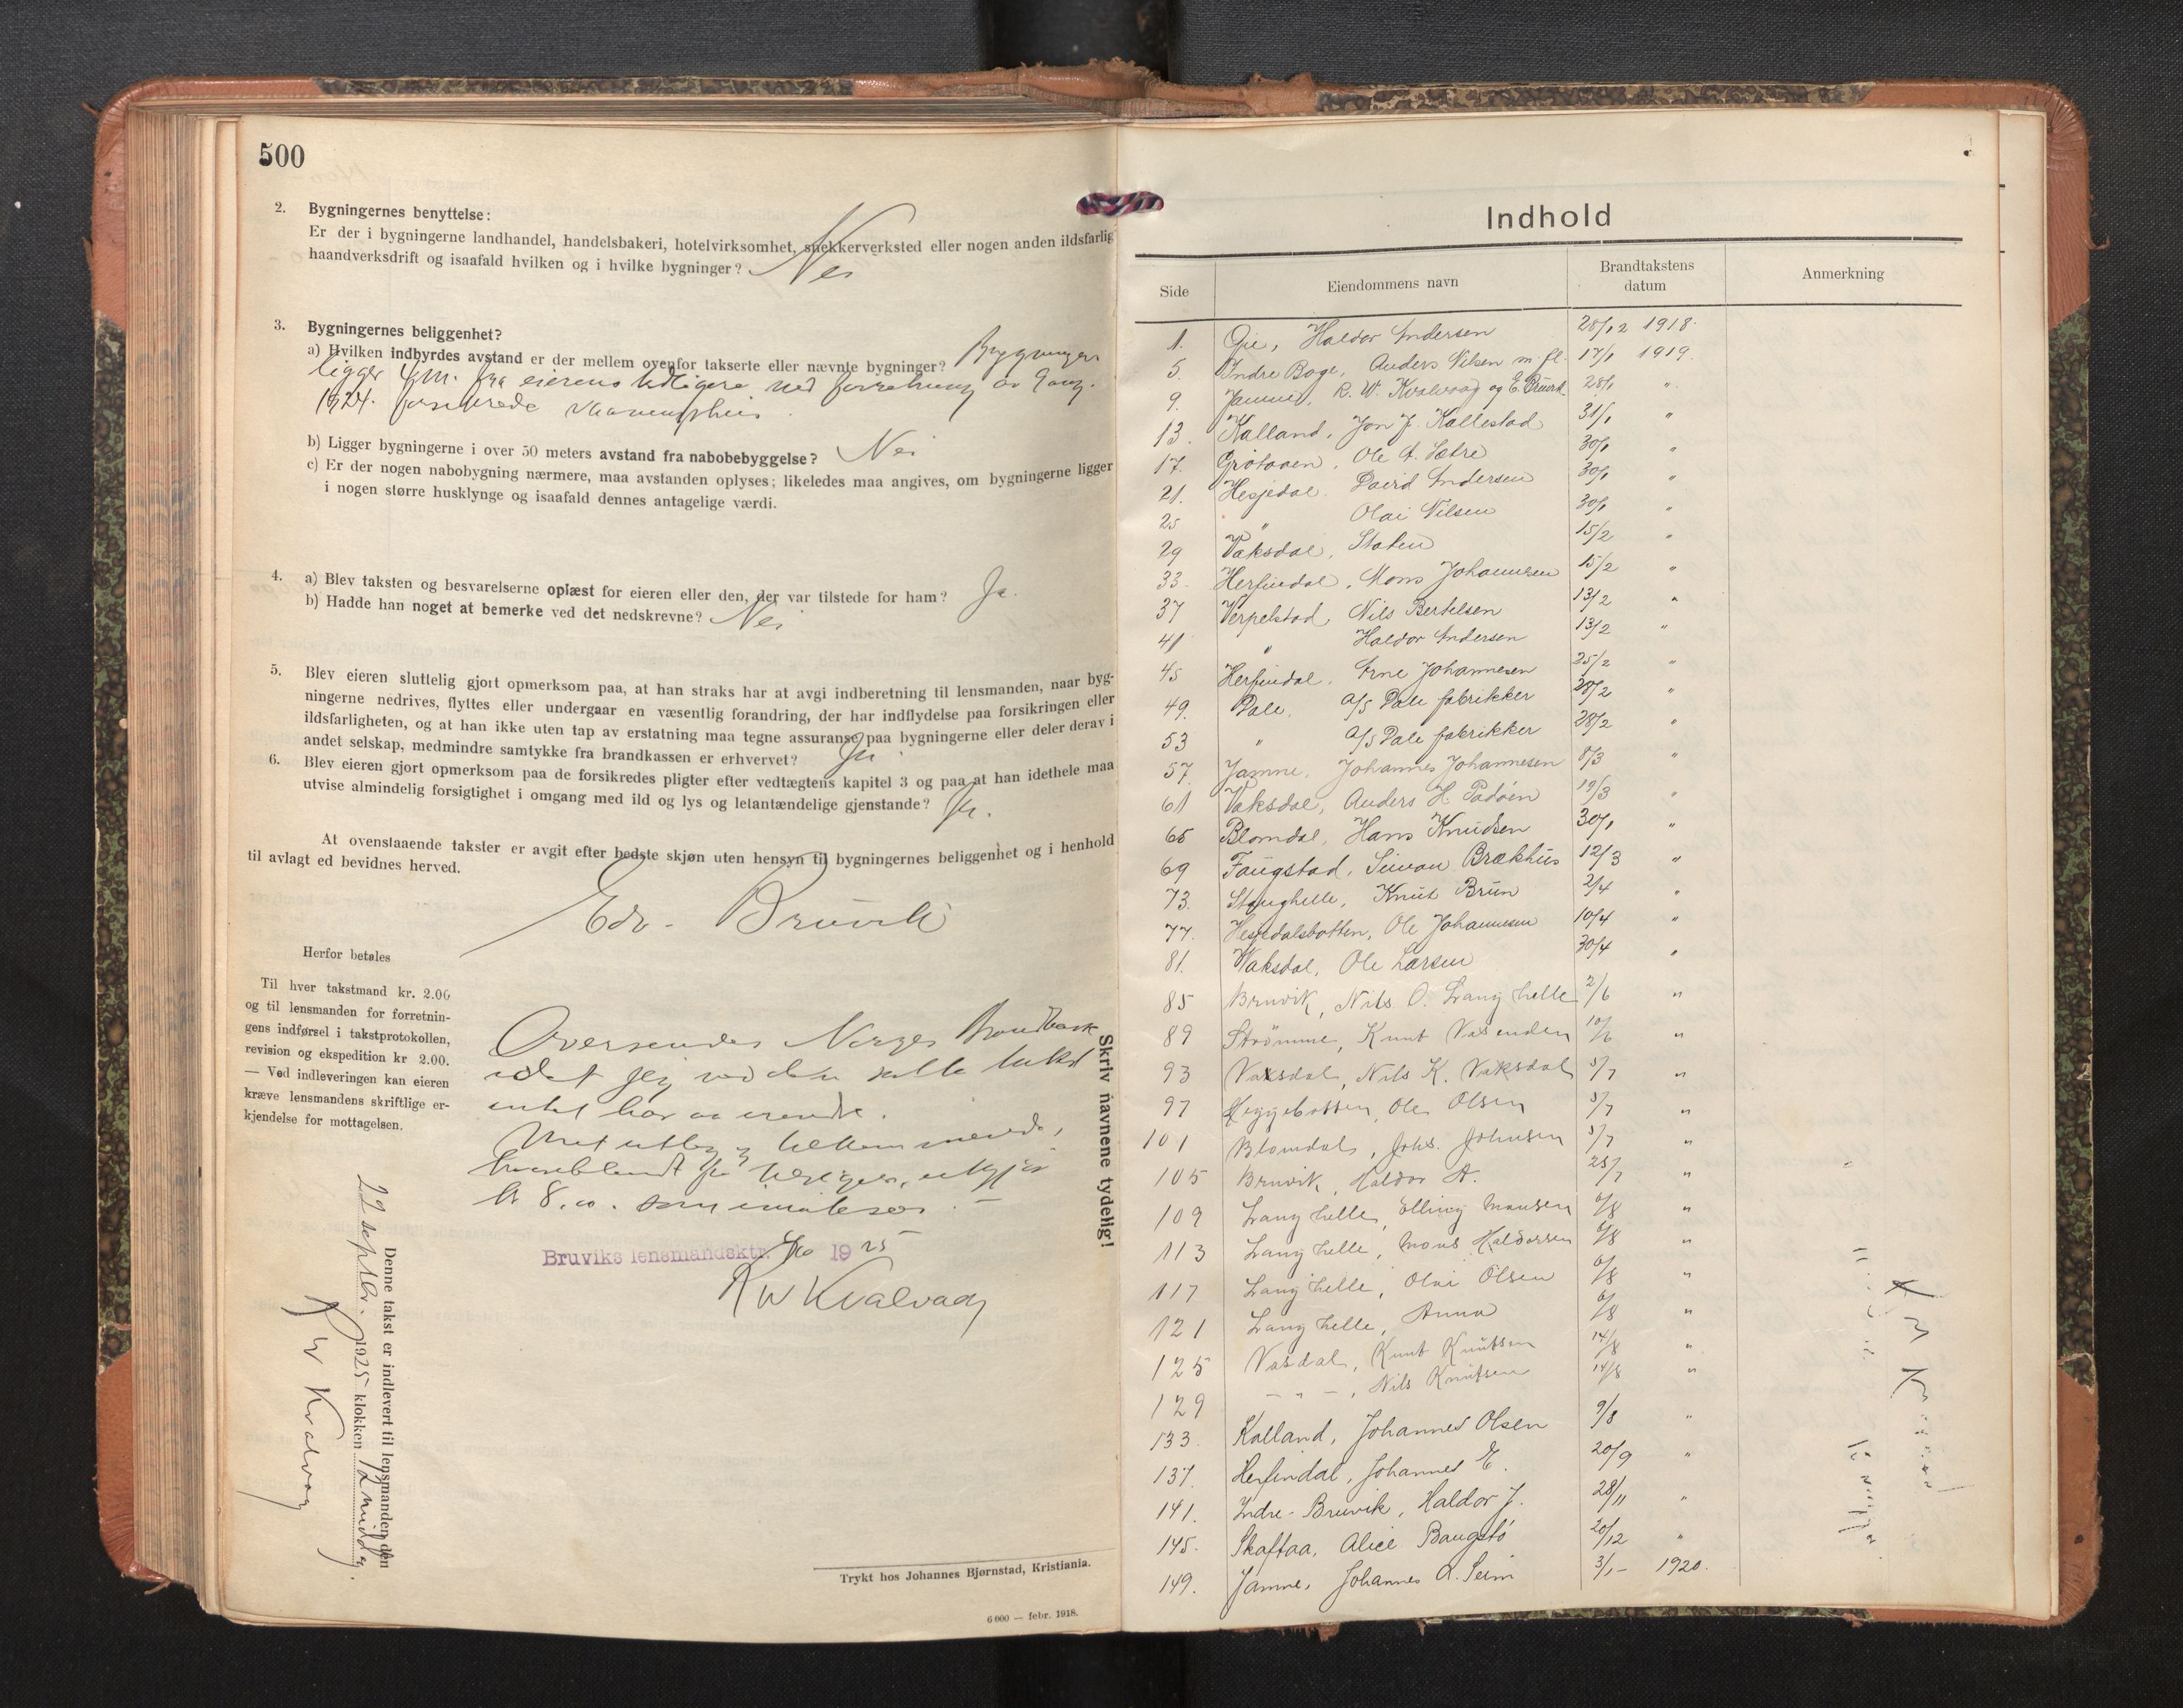 500
2. Bygningernes benyttelse:
Er der i bygningerne landhandel, handelsbakeri, hotelvirksomhet, snekkerverksted eller nogen anden ildsfarlig
haandverksdrift og isaafald hvilken og i hvilke bygninger? Nei
3. Bygningernes beliggenhet?
a) Hvilken indbyrdes avstand er der mellem ovenfor takserte eller nævnte bygninger? Bygningen
ligger 4 m. fra eierens tidligere ved forretning av
1924. vaaningshus
b) Ligger bygningerne i over 50 meters avstand fra nabobebyggelse? Nei
c) Er der nogen nabobygning nærmere, maa avstanden oplyses; likeledes maa angives, om bygningerne ligger
i nogen større husklynge og isaafald dennes antagelige værdi.
4. a) Blev taksten og besvarelserne oplæst for eieren eller den, der var tilstede for ham? Ja.
b) Hadde han noget at bemerke ved det nedskrevne? Nei
5. Blev eieren sluttelig gjort opmerksom paa, at han straks har at avgi indberetning til lensmanden, naar byg-
ningerne nedrives, flyttes eller undergaar en væsentlig forandring, der har indflydelse paa forsikringen eller
ildsfarligheten, og at han ikke uten tap av erstatning maa tegne assuranse paa bygningerne eller deler derav i
andet selskap, medmindre samtykke fra brandkassen er erhvervet? Ja
6. Blev eieren gjort opmerksom paa de forsikredes pligter efter vedtægtens kapitel 3 og paa at han idethele maa
utvise almindelig forsigtighet i omgang med ild og lys og letantændelige gjenstande? Ja.
At ovenstaaende takster er avgit efter bedste skjøn uten hensyn til bygningernes beliggenhet og i henhold
til avlagt ed bevidnes herved.
Edv. Bruvik
Herfor betales
Til hver takstmand kr. 2.00
og til lensmanden for forretnin-
gens indførsel i takstprotokollen,
revision og ekspedition kr 2.00.
— Ved indleveringen kan eieren
kræve lensmandens skriftlige er-
kjendelse for mottagelsen.
Oversendes Norges Brandkasse
idet jeg ved den takst
intet har at
kr 8.00. som
Bruviks lensmandsktr. 1925
R W Kvalvaag
Denne takst er indlevert til lensmanden den
22 septbr. 1925 klokken 12 middag.
R W Kvalvaag
Trykt hos Johannes Bjørnstad, Kristiania.
6 000 — febr. 1918.
Skriv navnene tydelig!
Indhold
Side Eiendommens navn Brandtakstens datum Anmerkning
1. Øie, Haldor Andersen 28/12 1918.
5. Indre Boge, Anders Nilsen m. fl. 17/1 1919.
9. Jamne, R. W. Kvalvaag og E. Bruvik 28/1 "
13. Kalland, Jon J. Kallestad 31/1 "
17. Grötaaen, Ole A. Sætre 30/1 "
21. Hesjedal. David Andersen 30/1 "
25 " Olai Nilsen 30/1 "
29 Vaksdal, Staten 15/2 "
33. Herfindal, Mons Johannesen 15/2 "
37 Verpelstad, Nils Bertelsen 13/2 "
41 " Haldor Andersen 13/2 "
45 Herfindal, Arne Johannesen 25/2 "
49. Dale, A/S Dale fabrikker 28/2 "
53 " A/S Dale fabrikker 28/2 "
57. Jamne, Johannes Johannesen 8/3 "
61 Vaksdal, Anders H. Padöen 19/3 "
65 Blomdal, Hans Knudsen 30/1 "
69 Faugstad, Simon Brækhus 12/3 "
73. Stanghelle, Knut Brun 2/4 "
77. Hesjedalsbotten, Ole Johannesen 10/4 "
81. Vaksdal, Ole Larsen 30/4 "
85 Bruvik, Nils O. Langhelle 2/6 "
89 Strömme, Knut Vasenden 10/6 "
93 Vaksdal, Nils K. Vaksdal 5/7 "
97 Heggebotten, Ole Olsen 5/7 "
101 Blomdal, Johs. Johnsen 5/7 "
105 Bruvik, Haldor A. 25/7 "
109 Langhelle, Elling Monsen 6/8 "
113 Langhelle, Mons Haldorsen 6/8 "
117 Langhelle, Olai Olsen 6/8 "
121 Langhelle, Anna 6/8 "
125 Vasdal, Knut Knutsen 14/8 "
129 - " -, Nils Knutsen 14/8 "
133. Kalland, Johannes Olsen 9/8 "
137. Herfindal, Johannes E. 20/9 "
141. Indre-Bruvik, Haldor J. 28/11 "
145. Skaftaa, Alice Baugstö 20/12 "
149. Jamne, Johannes A. Seim 3/1- 1920.